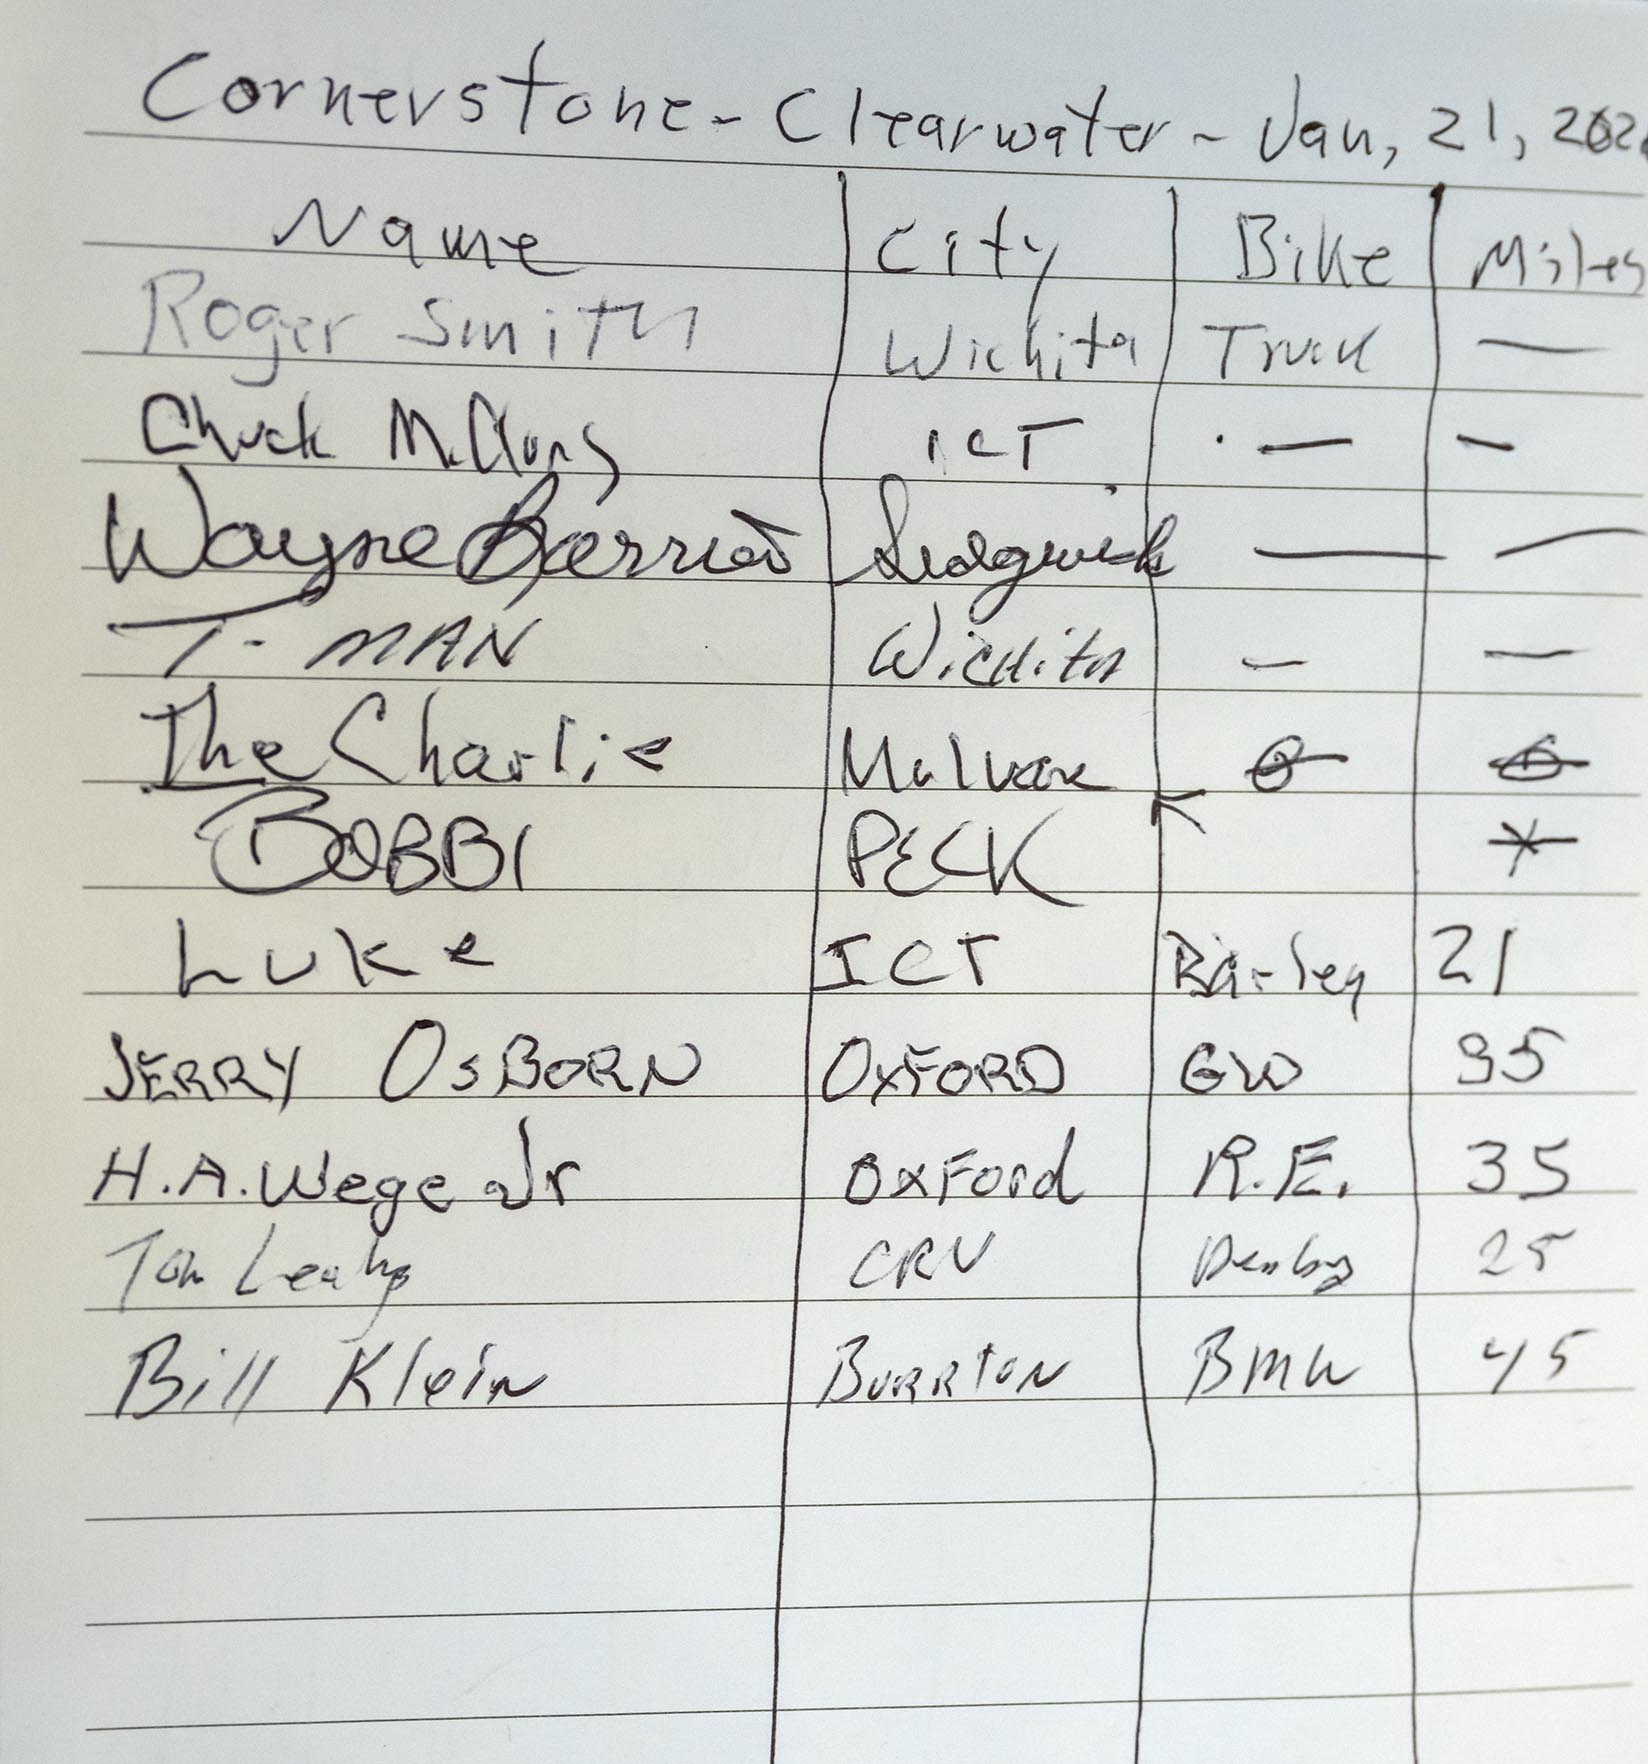 Cornerstone - Clearwater - Jan, 21, 202
Name City Bike Miles
Roger Smith Wichita Truck —
Chuck McClung ICT — —
Wayne Sedgwick — —
T-MAN Wichita — —
The Charlie Mulvane
BOBBI PECK
Luke ICT 21
JERRY OSBORN OXFORD GW 35
H.A. Wege Jr OxFord R.E. 35
Tom Leahy CRV 25
Bill Klein BURRTON BMW 45